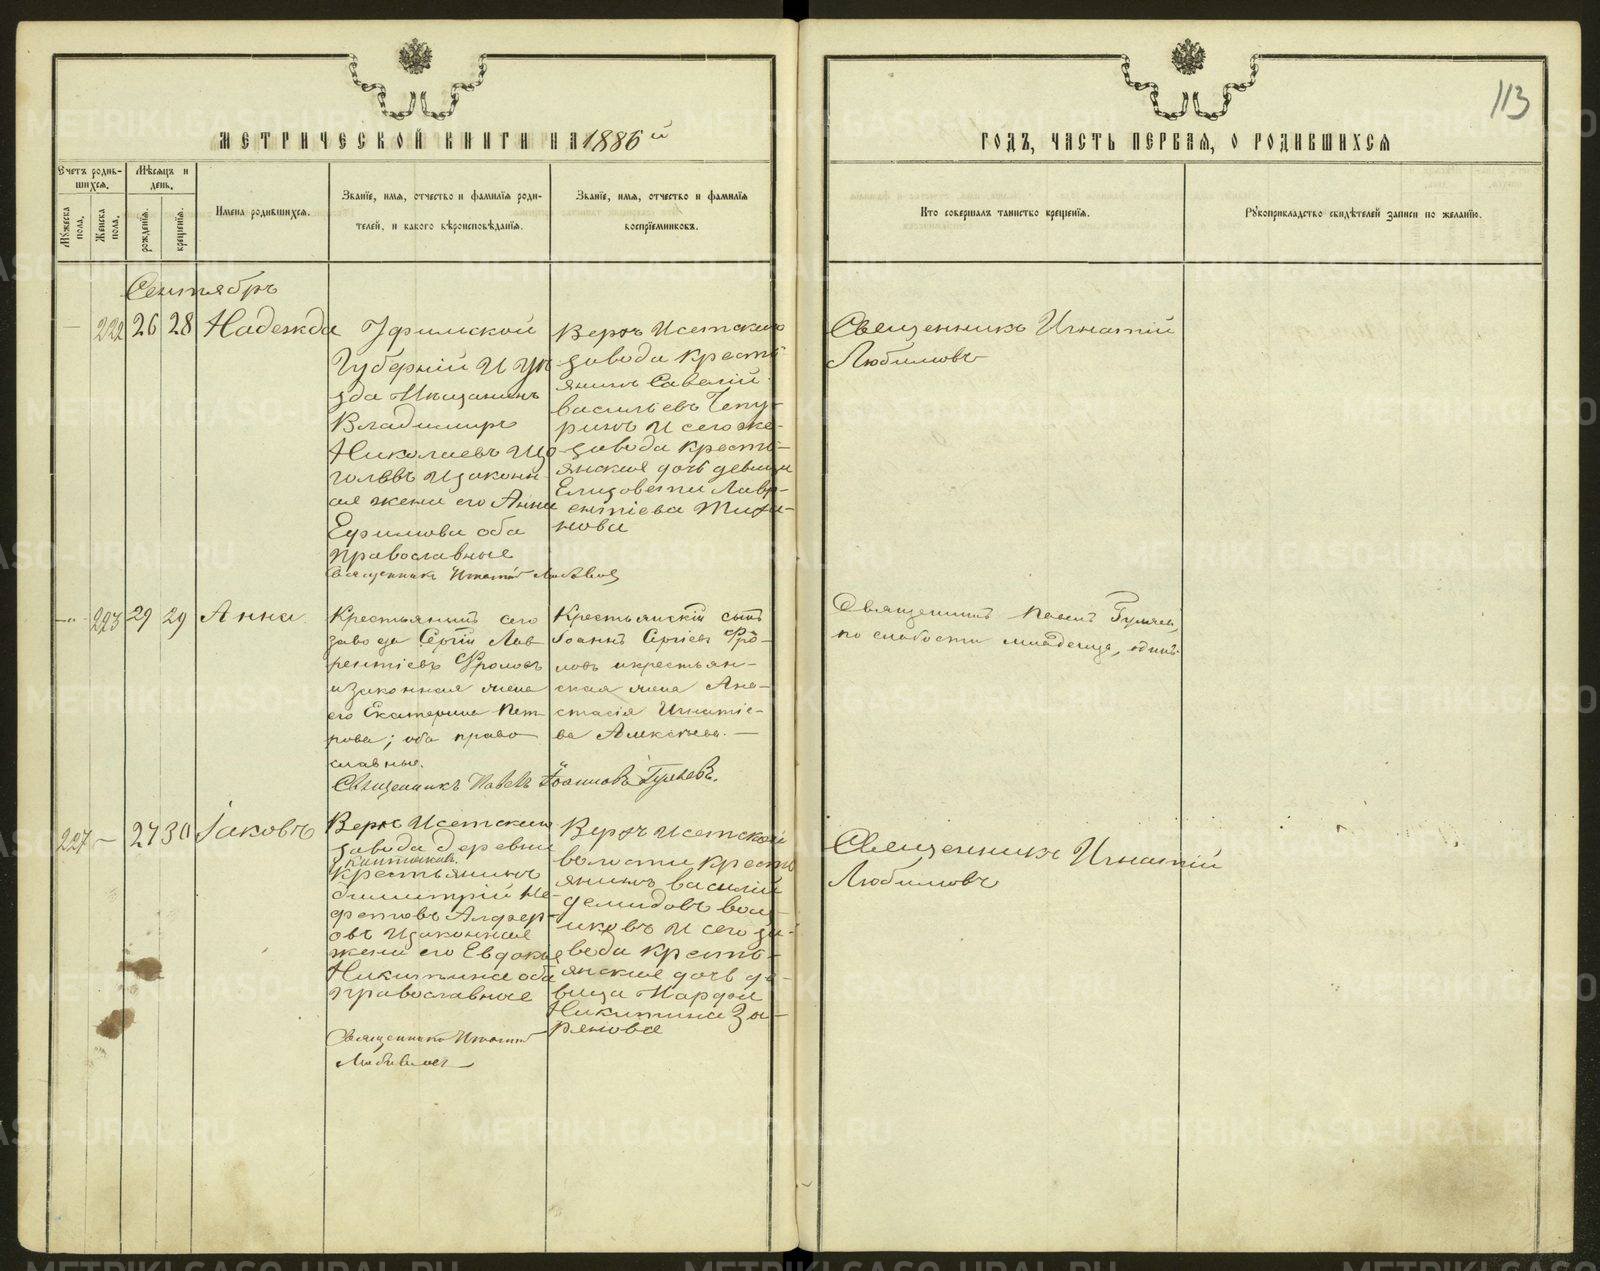 113
МЕТРИЧЕСКОЙ КНИГИ НА 1886й
ГОДЪ, ЧАСТЬ ПЕРВАЯ, О РОДИВШИХСЯ
Счетъ родив-
шихся.
Мужеска
пола.
Женска
пола.
Мѣсяцъ и
день.
рожденія.
крещенія.
Имена родившихся.
Званіе, имя, отчество и фамилія роди-
телей, и какого вѣроисповѣданія.
Званіе, имя, отчество и фамилія
воспріемниковъ.
Кто совершалъ таинство крещенія.
Рукоприкладство свидѣтелей записи по желанію.
Сентябрь
— 222 26 28 Надежда
Уфимской
Губерніи и Уѣ
зда Мѣщанинъ
Владимиръ
Николаевъ Що
голевъ и законн
ая жена его Анна
Ефимова оба
православные
Священникъ Игнатій Любимовъ
Верхъ Исетскаго
завода крестъ
янинъ Савелій
Васильевъ Чепу-
ринъ и сего же
завода кресть-
янская дочь девица
Елизавета Лавр-
ентіева
нова
Священникъ Игнатій
Любимовъ
— 223 29 29 Анна
Крестьянинъ сего
завода Сергій Лав-
рентіевъ Фроловъ
и законная жена
его Екатерина Пет-
рова; оба право
славные.
Священникъ Павелъ Іоанновъ Гуляевъ.
Крестьянскій сынъ
Іоаннъ Сергіевъ Фро-
ловъ и крестьян-
ская жена Ана-
стасія Игнатіе-
ва Алексѣева. —
Священникъ Павелъ Гуляевъ,
по слабости младенца, одинъ.
227 — 27 30 Іаковъ
Верхъ Исетскаго
завода деревни
крестьянинъ
Димитрій Ме-
фетовъ Алфер-
овъ и законная
жена его Евдокія
Никитина оба
православные
Священникъ Игнатій
Любимовъ
Верхъ Исетской
волости кресть
янинъ Василій
Демидовъ Вол-
ковъ и сего за-
вода кресть-
янская дочь де-
вица Марфа
Никитина Зы-
рянова
Священникъ Игнатій
Любимовъ
METRIKI.GASO-URAL.RU